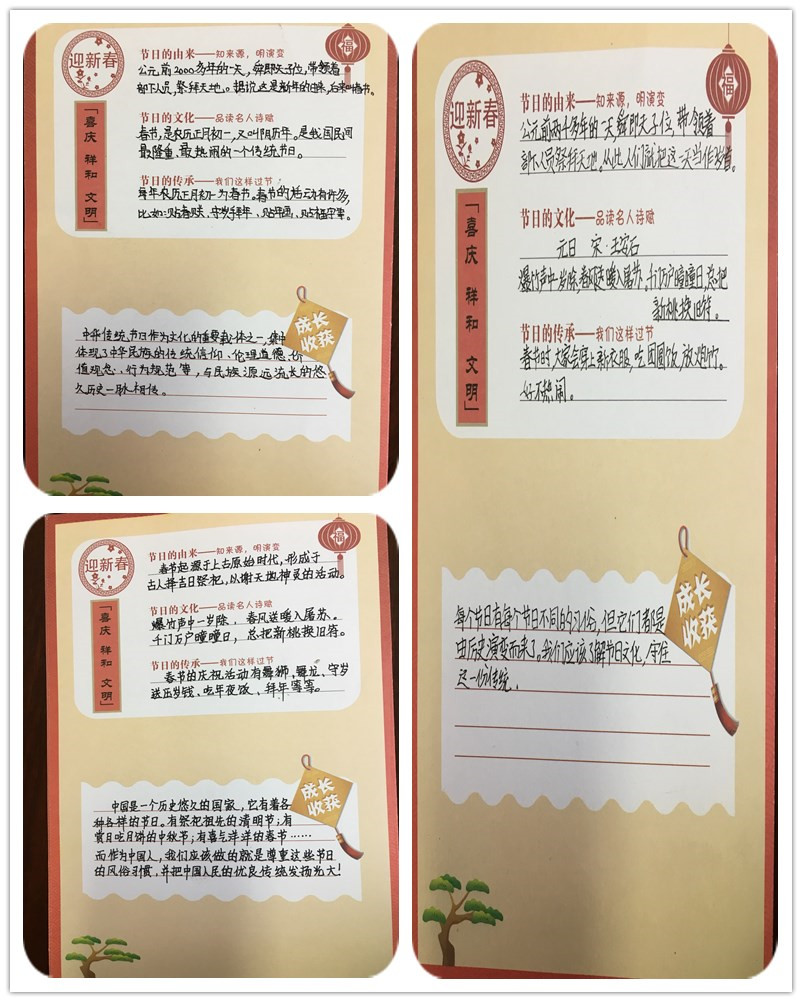 迎新春
「喜庆 祥和 文明」
福
节日的由来——知来源，明演变
公元前2000多年的一天，舜即天子位，带领着
部下人员，祭拜天地。据说这是新年的由来，后来叫春节。
节日的文化——品读名人诗赋
春节，是农历正月初一，又叫阴历年。是我国民间
最隆重、最热闹的一个传统节日。
节日的传承——我们这样过节
每年农历正月初一为春节。春节的活动有许多，
比如：贴春联、守岁拜年、贴年画、贴福字等。
成长
收获
中华传统节日作为文化的重要载体之一，集中
体现了中华民族的传统信仰、伦理道德、价
值观念、行为规范等，与民族源远流长的悠
久历史一脉相传。
迎新春
「喜庆 祥和 文明」
福
节日的由来——知来源，明演变
春节起源于上古原始时代，形成于
古人择吉日祭祀，以谢天地神灵的活动。
节日的文化——品读名人诗赋
爆竹声中一岁除，春风送暖入屠苏。
千门万户曈曈日，总把新桃换旧符。
节日的传承——我们这样过节
春节的庆祝活动有舞狮、舞龙、守岁
送压岁钱、吃年夜饭、拜年等等。
成长
收获
中国是一个历史悠久的国家，它有着各
种各样的节日。有祭祀祖先的清明节；有
赏月吃月饼的中秋节；有喜气洋洋的春节……
而作为中国人，我们应该做的就是尊重这些节日
的风俗习惯，并把中国人民的优良传统发扬光大！
迎新春
「喜庆 祥和 文明」
福
节日的由来——知来源，明演变
公元前两千多年的一天，舜即天子位，带领着
部下人员祭拜天地。从此人们就把这一天当作岁首。
节日的文化——品读名人诗赋
元日 宋·王安石
爆竹声中一岁除，春风送暖入屠苏。千门万户曈曈日，总把
新桃换旧符。
节日的传承——我们这样过节
春节时大家会穿上新衣服，吃团圆饭，放鞭炮。
好不热闹。
成长
收获
每个节日有每个节日不同的习俗，但它们都是
由历史演变而来了。我们应该了解节日文化，守住
这一份传统.